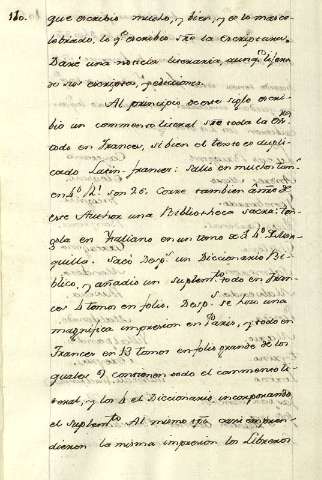 110.
que escribio mucho, y bien, y es lo mas ce-
lebrado, lo q.e escribio sre la escriptura.
Daré una noticia literaria, aunq.e ligera
de sus escriptos, y ediciones.
Al principio de este siglo escri-
bio un commento literal sre toda la
en Frances, si bien el texto es dupli-
cado Latin-frances: Salió en muchos tom.s
en 4.o son 26. Corre tambien
ese Author una Bibliotheca sacra: Ten-
gola en Italiano en un tomo 4.o
Sacó Desp.s un Diccionario Bi-
blico, y añadió un Suplem.to todo en Fran-
ces 4 tomos en folio. Desp.s se hizo una
magnifica impresion en Paris, y todo en
Frances en 13 tomos en folio grande de los
quales 9 contienen todo el commento li-
teral, y los 4 el Diccionario incorporando
el Suplem.to Al mismo tpo casi empren-
dieron la misma impresion los Libreros